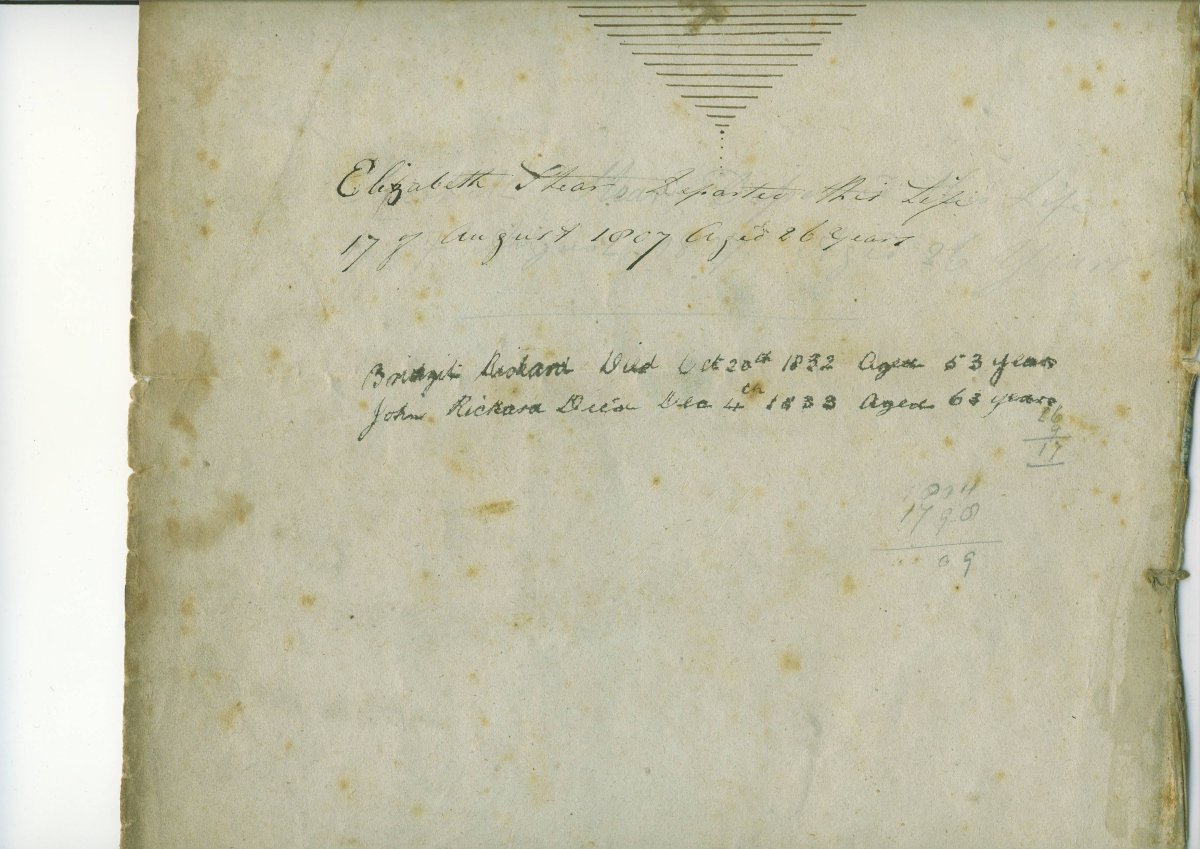 Elizabeth Shear Departed this Life
17 of August 1807 Aged 26 Years
Bridgit Rickard Died Oct 20th 1832 Aged 53 years
John Rickard Died Dec 4th 1833 Aged 63 years
26
9
17
1798
09